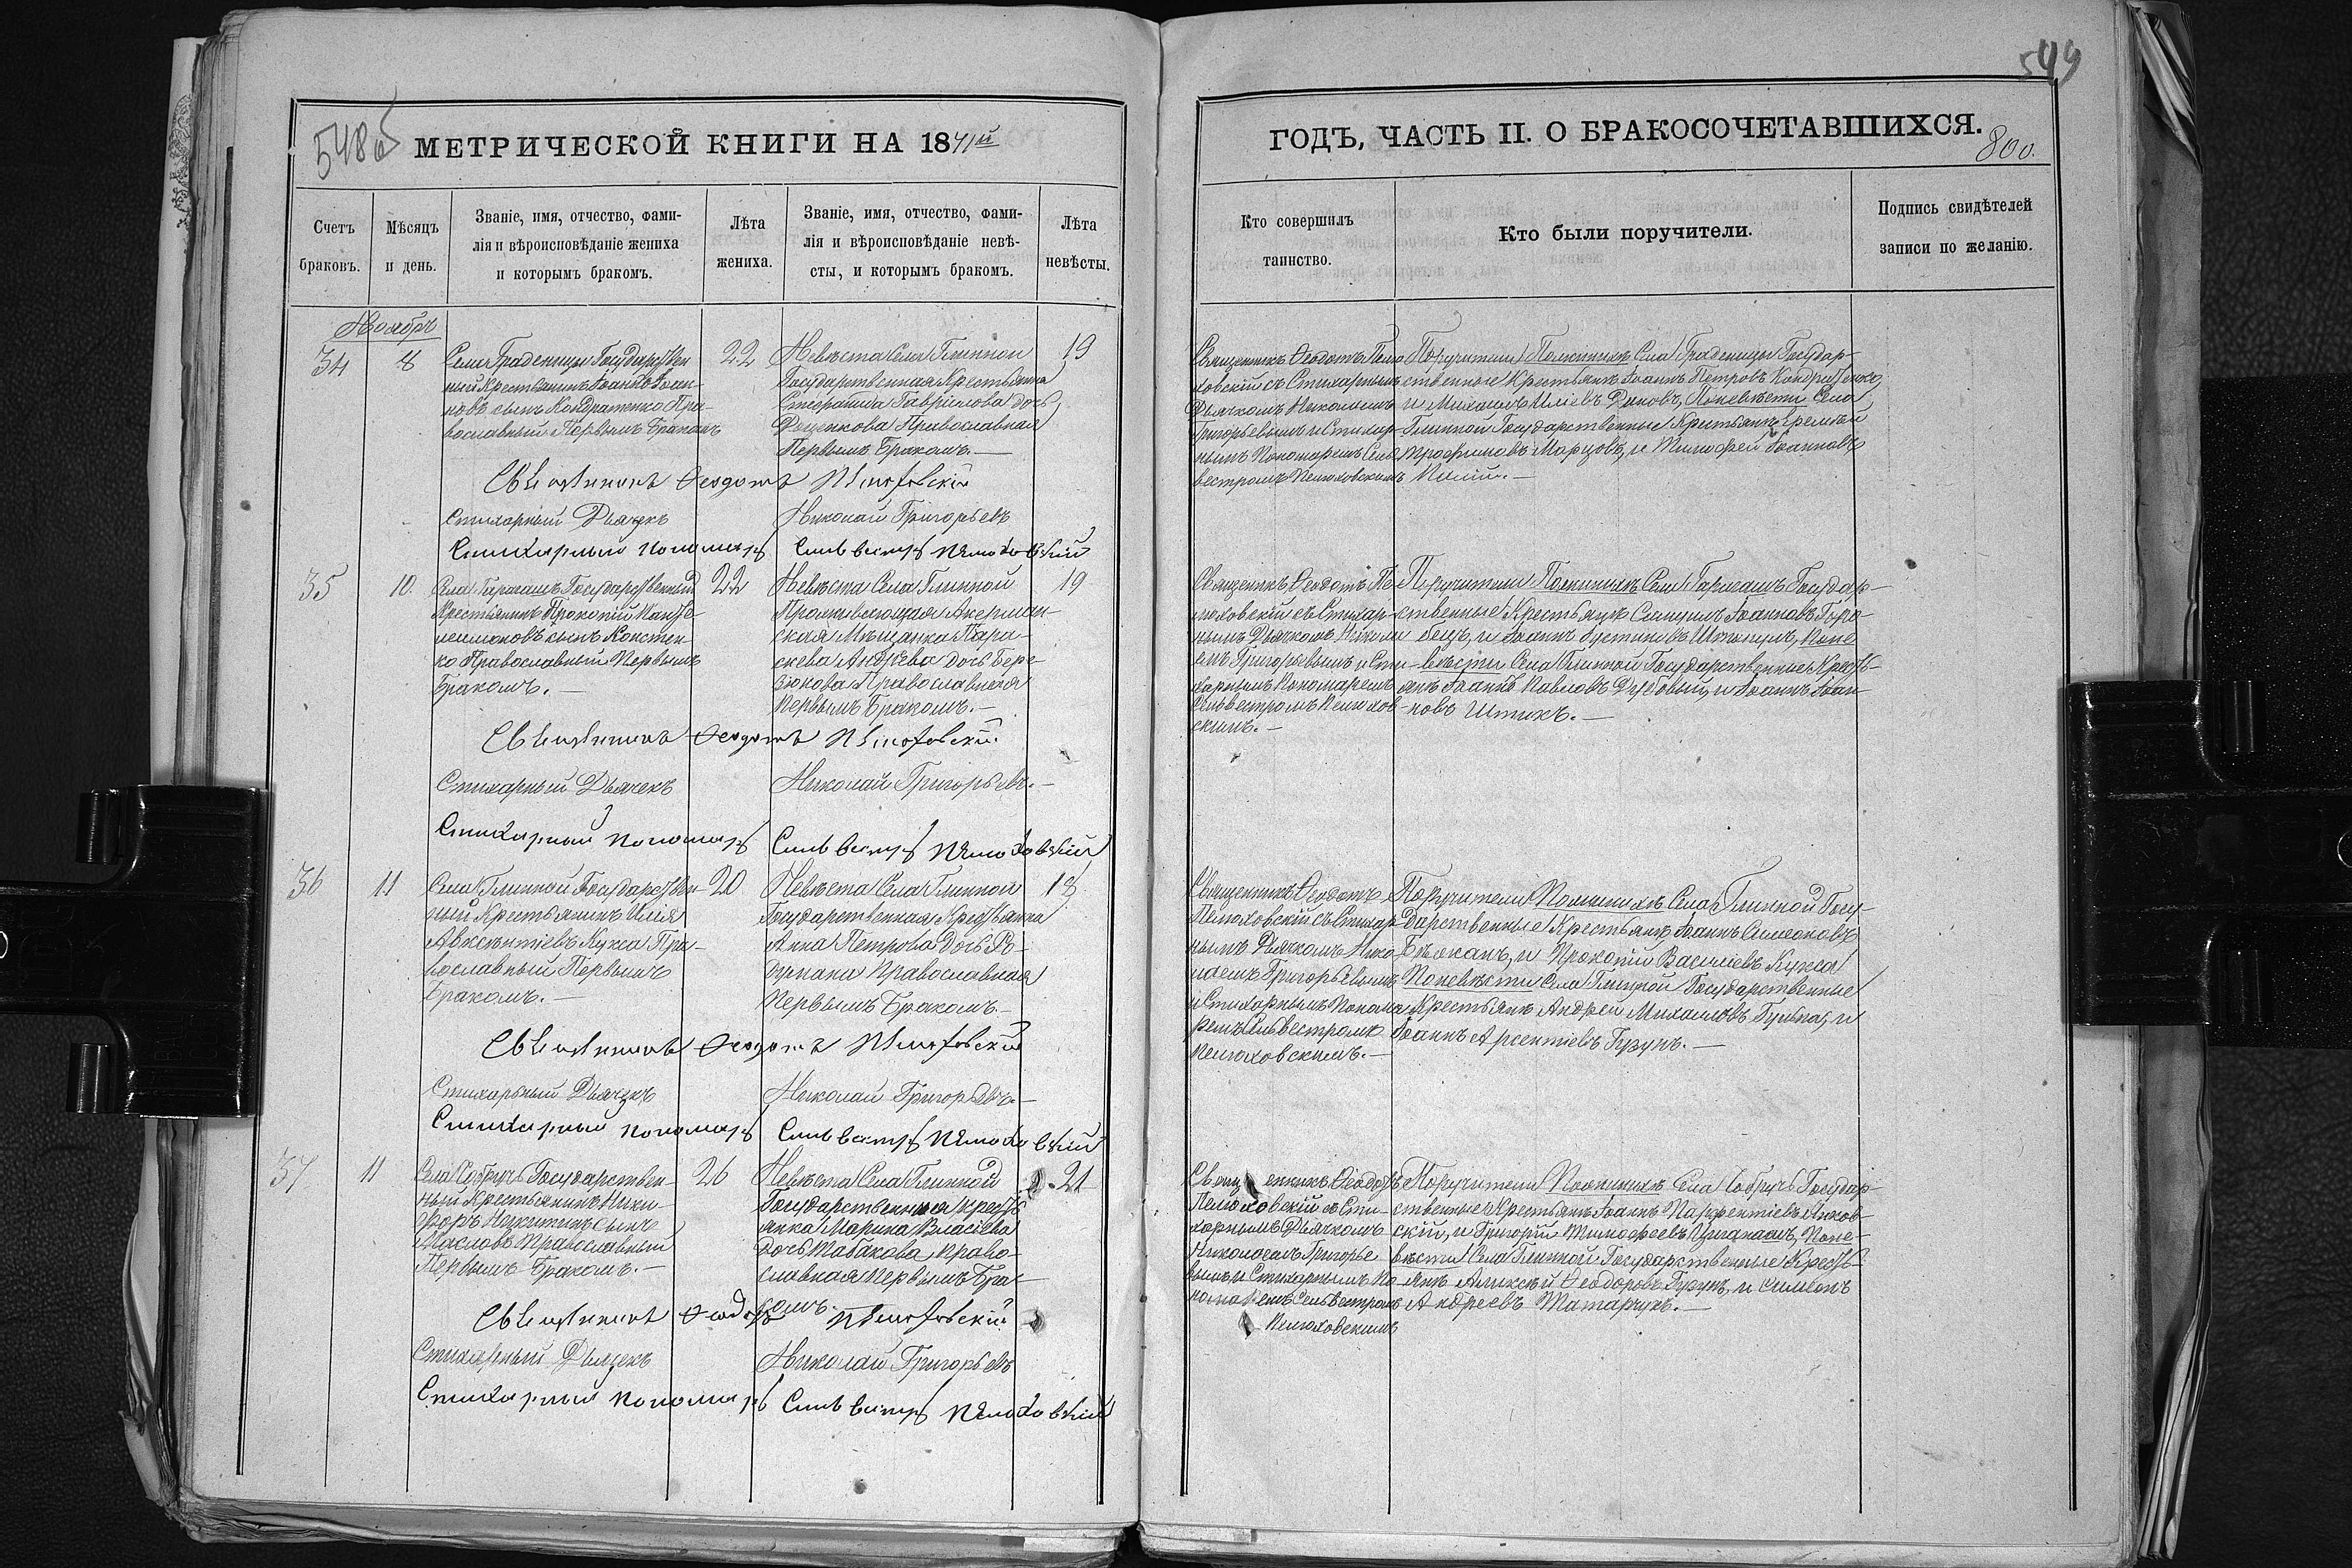 548 об
МЕТРИЧЕСКОЙ КНИГИ НА 1871й
Счетъ браковъ.
Мѣсяцъ и день.
Званіе, имя, отчество, фами-
лія и вѣроисповѣданіе жениха
и которымъ бракомъ.
Лѣта жениха.
Званіе, имя, отчество, фами-
лія и вѣроисповѣданіе невѣ-
сты, и которымъ бракомъ.
Лѣта невѣсты.
Ноябрь
34
8
Села Граденицы Государствен
ный Крестьянинъ Іоаннъ Іоан-
новъ сынъ Кондратенко Пра-
вославный Первымъ Бракомъ
22
Невѣста Села Глинной
Государственная Крестьянка
Гавріилова дочь
Доценкова Православная
Первымъ Бракомъ.—
19
Священникъ Ѳеодотъ Пелюховскій
Стихарный Дьячекъ Николай Григорьевъ
Стихарный пономарь Сильвестръ Пелюховскій
35
10.
Села Гаргашъ Государственный
Крестьянинъ Прокопій Панте-
леимоновъ сынъ Констен-
ко Православный Первымъ
Бракомъ.—
22
Невѣста Села Глинной
Проживающая Акерман-
ская Мѣщанка Пара-
скева Андреева дочь Бере-
зюкова Православная
Первымъ Бракомъ.—
19
Священникъ Ѳеодотъ Пелюховскій
Стихарный Дьячекъ Николай Григорьевъ.—
Стихарный пономарь Сильвестръ Пелюховскій
36
11
Села Глинной Государствен-
ный Крестьянинъ Илія
Авксентіевъ Кукса Пра-
вославный Первымъ
Бракомъ.—
20
Невѣста Села Глинной
Государственная Крестьянка
Анна Петрова дочь Ро-
Православная
Первымъ Бракомъ.—
18
Священникъ Ѳеодотъ Пелюховскій
Стихарный Дьячекъ Николай Григорьевъ.—
Стихарный пономарь Сильвестръ Пелюховскій
37
11
Села Чобручь Государствен-
ный Крестьянинъ Ники-
форъ Никитинъ сынъ
Масловъ Православный
Первымъ Бракомъ.—
26
Невѣста Села Глинной
Государственная Кресть
янка Марина Власіева
дочь Табакова, Право-
славная Первымъ Бра-
комъ.
21
Священникъ Ѳеодотъ Пелюховскій
Стихарный Дьячекъ Николай Григорьевъ
Стихарный пономарь Сильвестръ Пелюховскій
549
ГОДЪ, ЧАСТЬ II. О БРАКОСОЧЕТАВШИХСЯ.
800.
Кто совершилъ таинство.
Кто были поручители.
Подпись свидѣтелей записи по желанію.
Священникъ Ѳеодотъ Пелю
ховскій съ Стихарнымъ
Дьячкомъ Николаемъ
Григорьевымъ и Стихар-
нымъ Пономаремъ Силь
вестромъ Пелюховскимъ
Поручители Поженихѣ Села Граденицы Государ-
ственные Крестьяне Іоаннъ Петровъ Кондратенко,
и Михаилъ Иліевъ Поневѣсти Села
Глинной Государственные Крестьяне Еремѣй
Трофимовъ Марцовъ, и Тимофей Іоанновъ
Палій.—
Священникъ Ѳеодотъ Пе-
люховскій съ Стихар-
нымъ Дьячкомъ Никола
емъ Григорьевымъ и Сти-
харнымъ Пономаремъ
Сильвестромъ Пелюхов-
скимъ.—
Поручители Поженихѣ Села Гаргашъ Государ-
ственные Крестьяне Іоанновъ Горо-
бецъ, и Іоаннъ Поне
вѣсти Села Глинной Государственные Кресть-
яне Іоаннъ Павловъ Дубовый, и Іоаннъ Іоан-
новъ Штикъ.—
Священникъ Ѳеодотъ
Пелюховскій съ Стихар
нымъ Дьячкомъ Нико
лаемъ Григорьевымъ
и Стихарнымъ Понома
ремъ Сильвестромъ
Пелюховскимъ.—
Поручители Поженихѣ Села Глинной Госу-
дарственные Крестьяне, Іоаннъ Симеоновъ
и Прокопій Василіевъ Кукса
Поневѣсти Села Глинной Государственные
Крестьяне Андрей Михаиловъ и
Іоаннъ Арсентіевъ Гузунъ.—
Священникъ Ѳеодотъ
Пелюховскій съ Сти-
харнымъ Дьячкомъ
Николаемъ Григорье-
вымъ и Стихарнымъ По
номаремъ Сельвестромъ
Пелюховскимъ
Поручители Поженихѣ Села Чобручь Государ-
ственные Крестьяне Іоаннъ Парфентіевъ
и Григорій Тимофеевъ Поне-
вѣсти Села Глинной Государственные Кресть-
яне Алексѣй Ѳеодоровъ Гузунъ, и Симеонъ
Андреевъ Татарчукъ.—